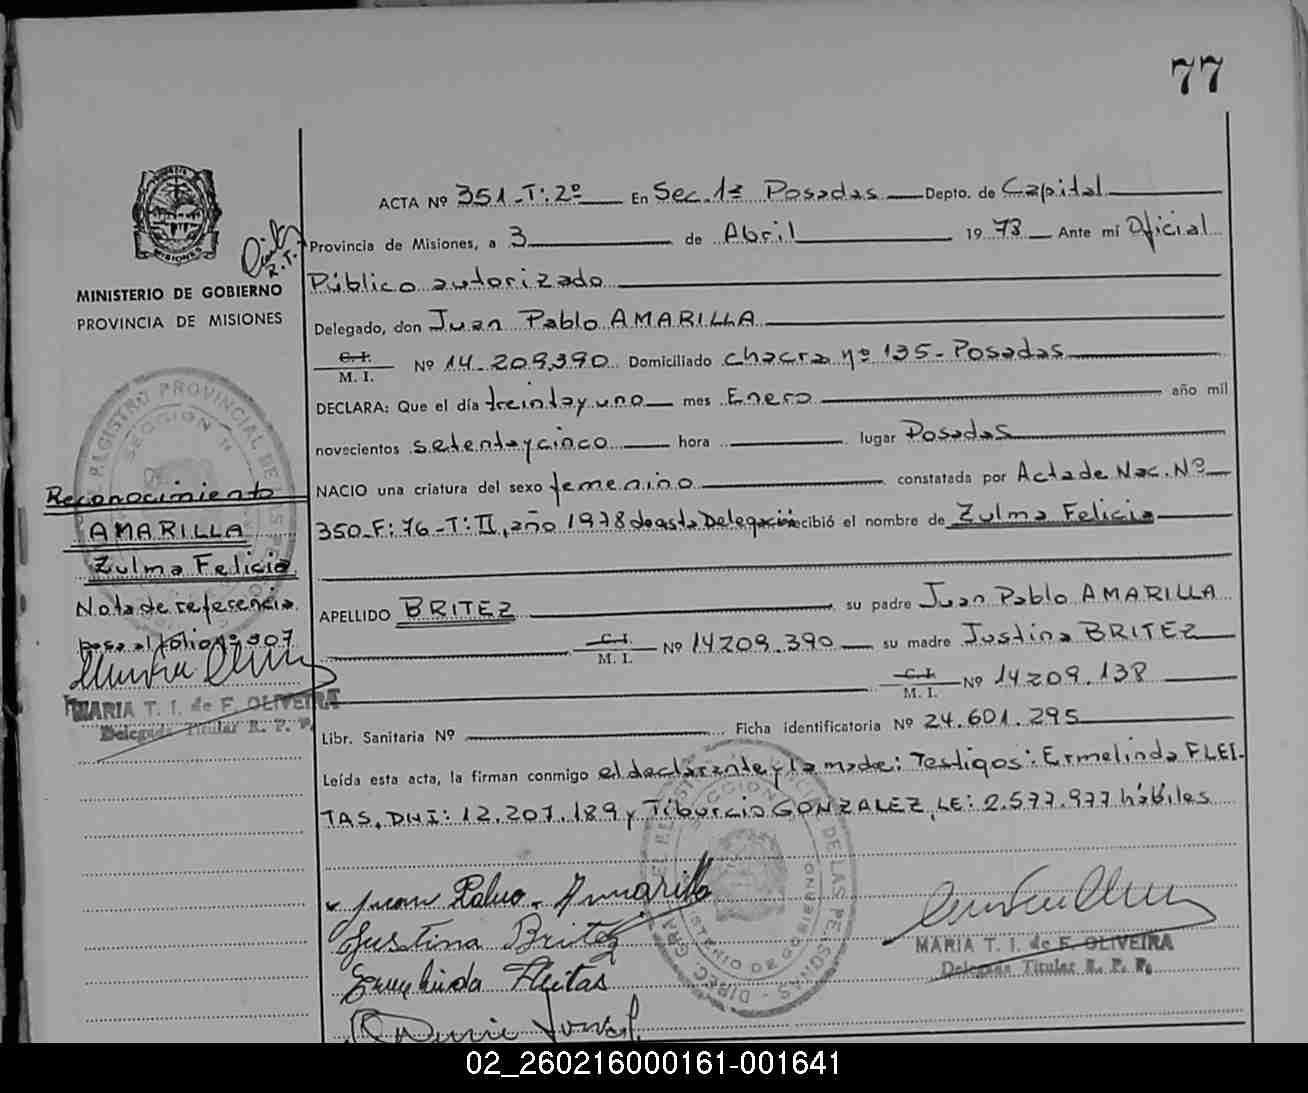 77
ACTA Nº 351-T:2º En Sec. 1ª Posadas Depto. de Capital
Provincia de Misiones, a 3 de Abril 1973 Ante mí Oficial
Público autorizado
MINISTERIO DE GOBIERNO
PROVINCIA DE MISIONES
Delegado, don Juan Pablo AMARILLA
C.I. M. I. Nº 14.209.390 Domiciliado chacra nº 135- Posadas
DECLARA: Que el día treinta y uno mes Enero año mil
novecientos setenta y cinco hora lugar Posadas
NACIO una criatura del sexo femenino constatada por Acta de Nac. Nº
350-F:76-T:II, año 1978 de esta Delegación recibió el nombre de Zulma Felicia
Reconocimiento
AMARILLA
Zulma Felicia
Nota de referencia
pasa al folio nº 307
APELLIDO BRITEZ su padre Juan Pablo AMARILLA
C.I. M. I. Nº 14209.390 su madre Justina BRITEZ
C.I. M. I. Nº 14209.138
MARIA T. I. de F. OLIVEIRA
Delegada Titular R. P. P.
Libr. Sanitaria Nº Ficha identificatoria Nº 24.601.295
Leída esta acta, la firman conmigo el declarante y la madre; Testigos: Ermelinda FLEI-
TAS, DNI: 12.207.189 y Tiburcio GONZALEZ, LE: 2.577.977 hábiles
Juan Pablo Amarilla
Justina Britez
Ermelinda Fleitas
MARIA T. I. de F. OLIVEIRA
Delegada Titular R. P. P.
02_260216000161-001641